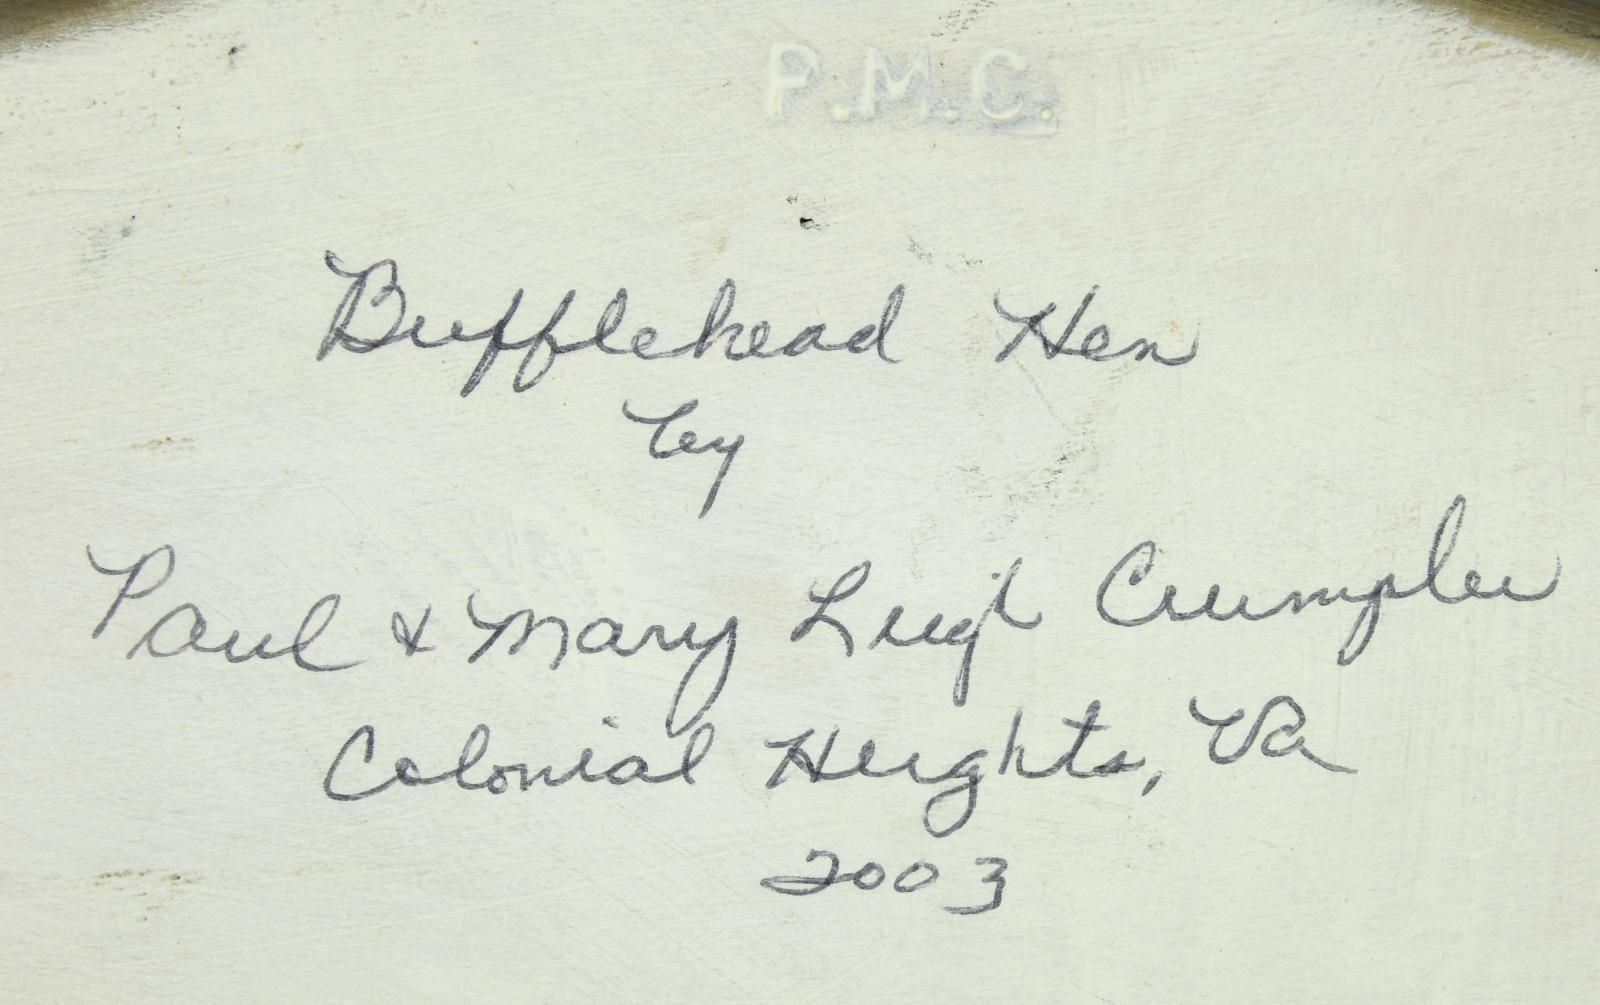 P.M.C.
Bufflehead Hen
by
Paul & Mary Leigh Crumpler
Colonial Heights, Va
2003